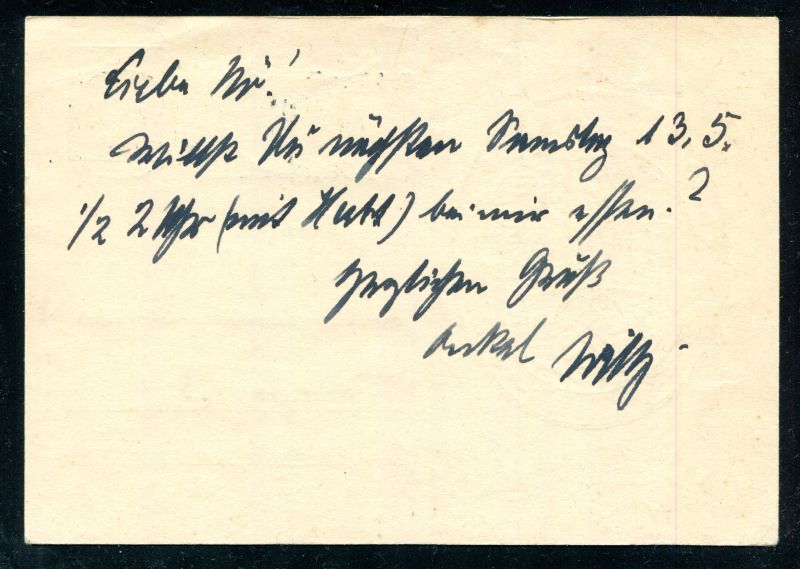 Liebe
Willst Du nächsten Samstag 13.5.
1/2 2 Uhr (mit ) bei mir essen.?
Herzlichen Gruß
Onkel Willy